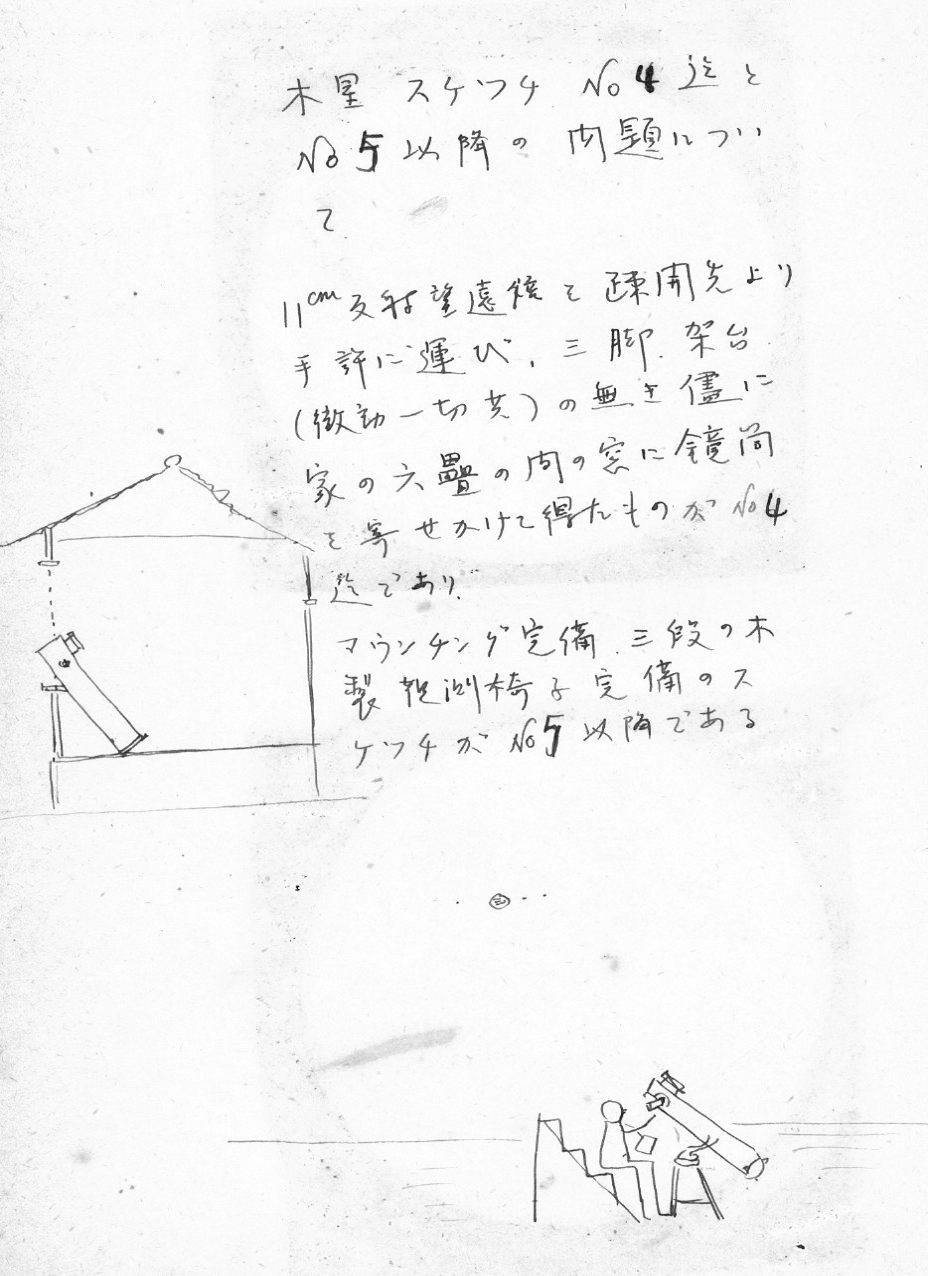 木星 スケッチ No4 迄と
No5以降の 問題につい
て
11cm反射望遠鏡を疎開先より
手許に運び、三脚、架台
(微動一切共)の無き儘に
家の六疊の間の窓に鏡筒
を寄せかけて得たものがNo4
迄であり、
マウンチング完備、三段の木
製観測椅子完備のス
ケッチがNo5以降である